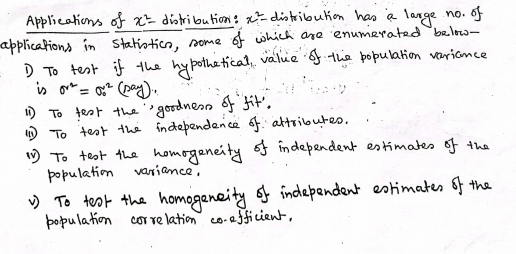 Applications of χ² distribution: χ² distribution has a large no. of
applications in statistics, some of which are enumerated below—
i) To test if the hypothetical value of the population variance
is σ² = σ₀² (say).
ii) To test the 'goodness of fit'.
iii) To test the independence of attributes.
iv) To test the homogeneity of independent estimates of the
population variance.
v) To test the homogeneity of independent estimates of the
population correlation co-efficient.